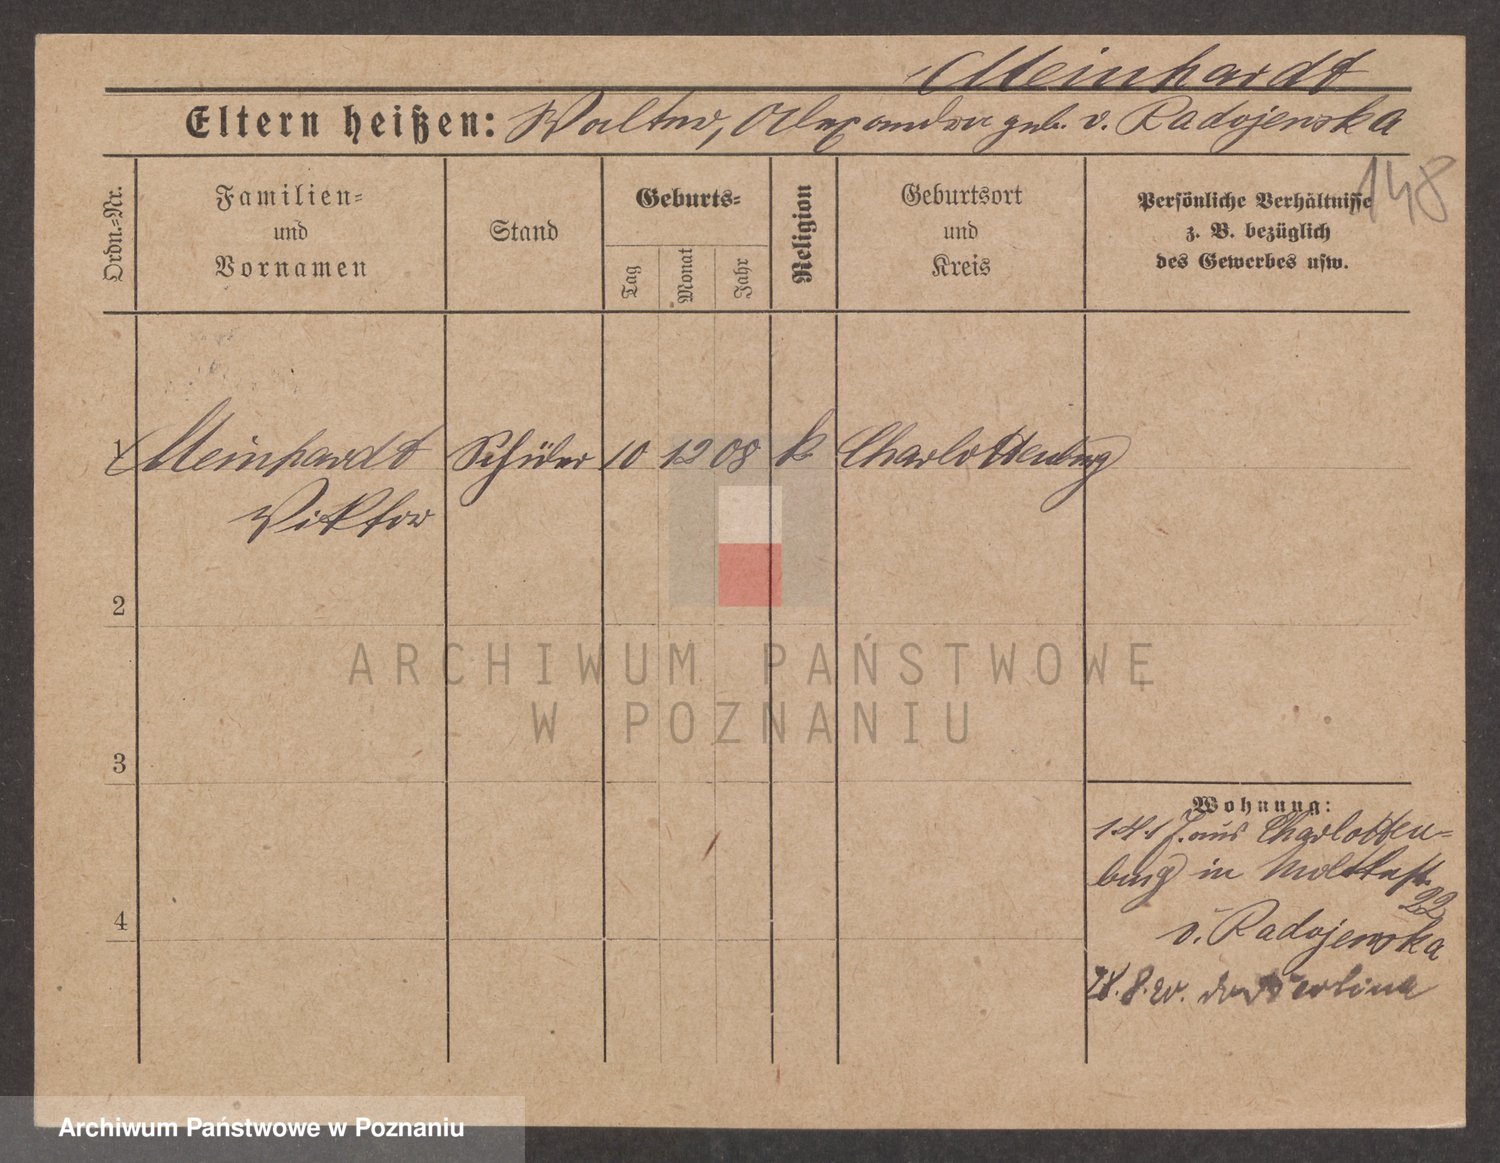 Meinhardt
Eltern heißen: Walter, Alexandra geb. v. Radojewska
148
Ordn.-Nr.
Familien-
und
Vornamen
Stand
Geburts-
Tag
Monat
Jahr
Religion
Geburtsort
und
Kreis
Persönliche Verhältnisse
z. B. bezüglich
des Gewerbes usw.
1 Meinhardt Schüler 10 12 08 k Charlottenburg
Viktor
2
3
4
Wohnung:
aus Charlotten-
burg in Moltkestr.
22
v. Radojewska
28.8.20. do Berlina
ARCHIWUM PAŃSTWOWE
W POZNANIU
Archiwum Państwowe w Poznaniu